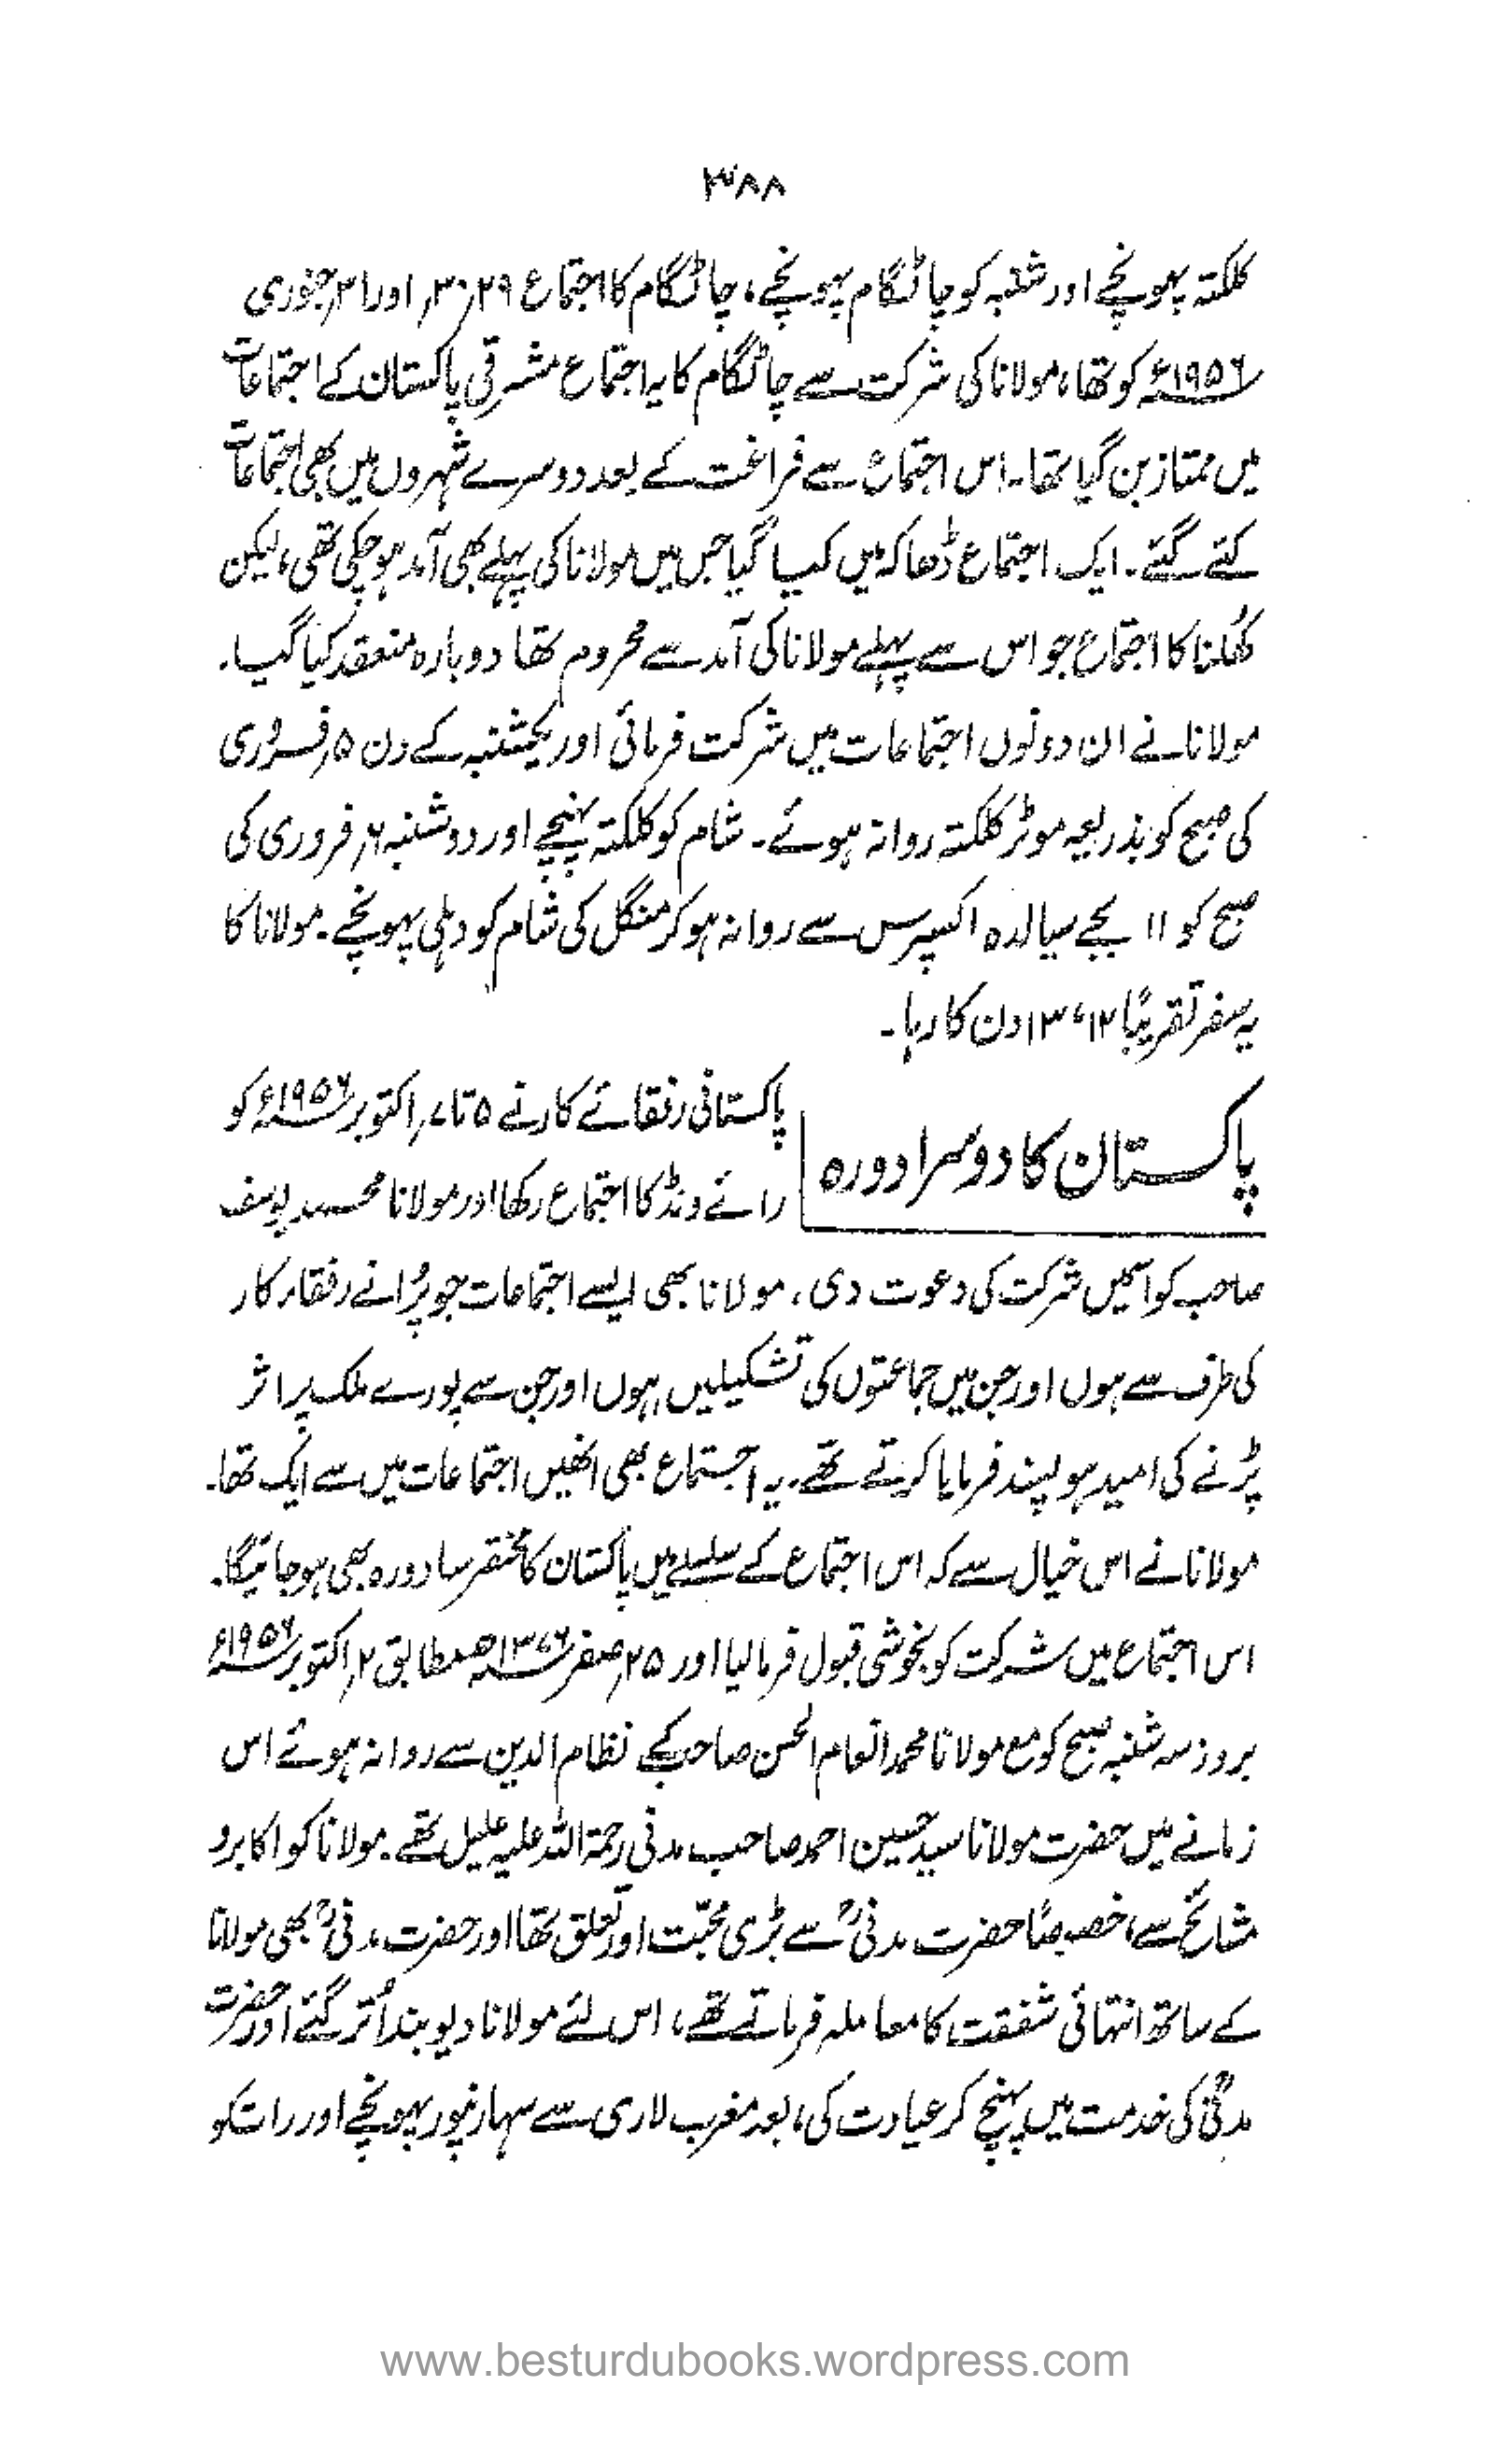 ۳۸۸
کلکتہ پہونچے اور شنبہ کو چاٹگام پہونچے، چاٹگام کا اجتماع ۲۹، ۳۰، اور ۳۱ جنوری
۱۹۵۶ء کو تھا، مولانا کی شرکت سے چاٹگام کا یہ اجتماع مشرقی پاکستان کے اجتماعات
میں ممتاز بن گیا تھا۔ اس اجتماع سے فراغت کے بعد دوسرے شہروں میں بھی اجتماعات
کئے گئے۔ ایک اجتماع ڈھاکہ میں کیا گیا جس میں مولانا کی پہلے بھی آمد ہوچکی تھی، لیکن
کھلنا کا اجتماع جو اس سے پہلے مولانا کی آمد سے محروم تھا دوبارہ منعقد کیا گیا۔
مولانا نے ان دونوں اجتماعات میں شرکت فرمائی اور یکشنبہ کے دن ۵؍ فروری
کی صبح کو بذریعہ موٹر کلکتہ روانہ ہوئے۔ شام کو کلکتہ پہنچے اور دوشنبہ ۶؍ فروری کی
صبح کو ۱۱ بجے سیالدہ اکسپرس سے روانہ ہوکر منگل کی شام کو دہلی پہونچے۔ مولانا کا
یہ سفر تقریبًا ۱۲، ۱۳ دن کا رہا۔
پاکستان کا دوسرا دورہ
پاکستانی رفقائے کار نے ۵ تا ۷؍ اکتوبر ۱۹۵۶ء کو
رائے ونڈ کا اجتماع رکھا اور مولانا محمد یوسف
صاحب کو اسمیں شرکت کی دعوت دی، مولانا بھی ایسے اجتماعات جو پُرانے رفقاء کار
کی طرف سے ہوں اور جن میں جماعتوں کی تشکیلیں ہوں اور جن سے پورے ملک پر اثر
پڑنے کی امید ہو پسند فرمایا کرتے تھے۔ یہ اجتماع بھی انھیں اجتماعات میں سے ایک تھا۔
مولانا نے اس خیال سے کہ اس اجتماع کے سلسلے میں پاکستان کا مختصر سا دورہ بھی ہوجائیگا۔
اس اجتماع میں شرکت کو بخوشی قبول فرمالیا اور ۲۵؍ صفر ۱۳۷۶ھ مطابق ۲؍ اکتوبر ۱۹۵۶ء
بروز سہ شنبہ صبح کو مع مولانا محمد انعام الحسن صاحب کے نظام الدین سے روانہ ہوئے اس
زمانے میں حضرت مولانا سید حسین احمد صاحب مدنی رحمۃ اللہ علیہ علیل تھے۔ مولانا کو اکابر و
مشائخ سے، خصوصًا حضرت مدنیؒ سے بڑی محبّت اور تعلق تھا اور حضرت مدنیؒ بھی مولانا
کے ساتھ انتہائی شفقت کا معاملہ فرماتے تھے، اس لئے مولانا دیوبند اُتر گئے اور حضرت
مدنیؒ کی خدمت میں پہنچ کر عیادت کی، بعد مغرب لاری سے سہارنپور پہونچے اور رات کو
www.besturdubooks.wordpress.com